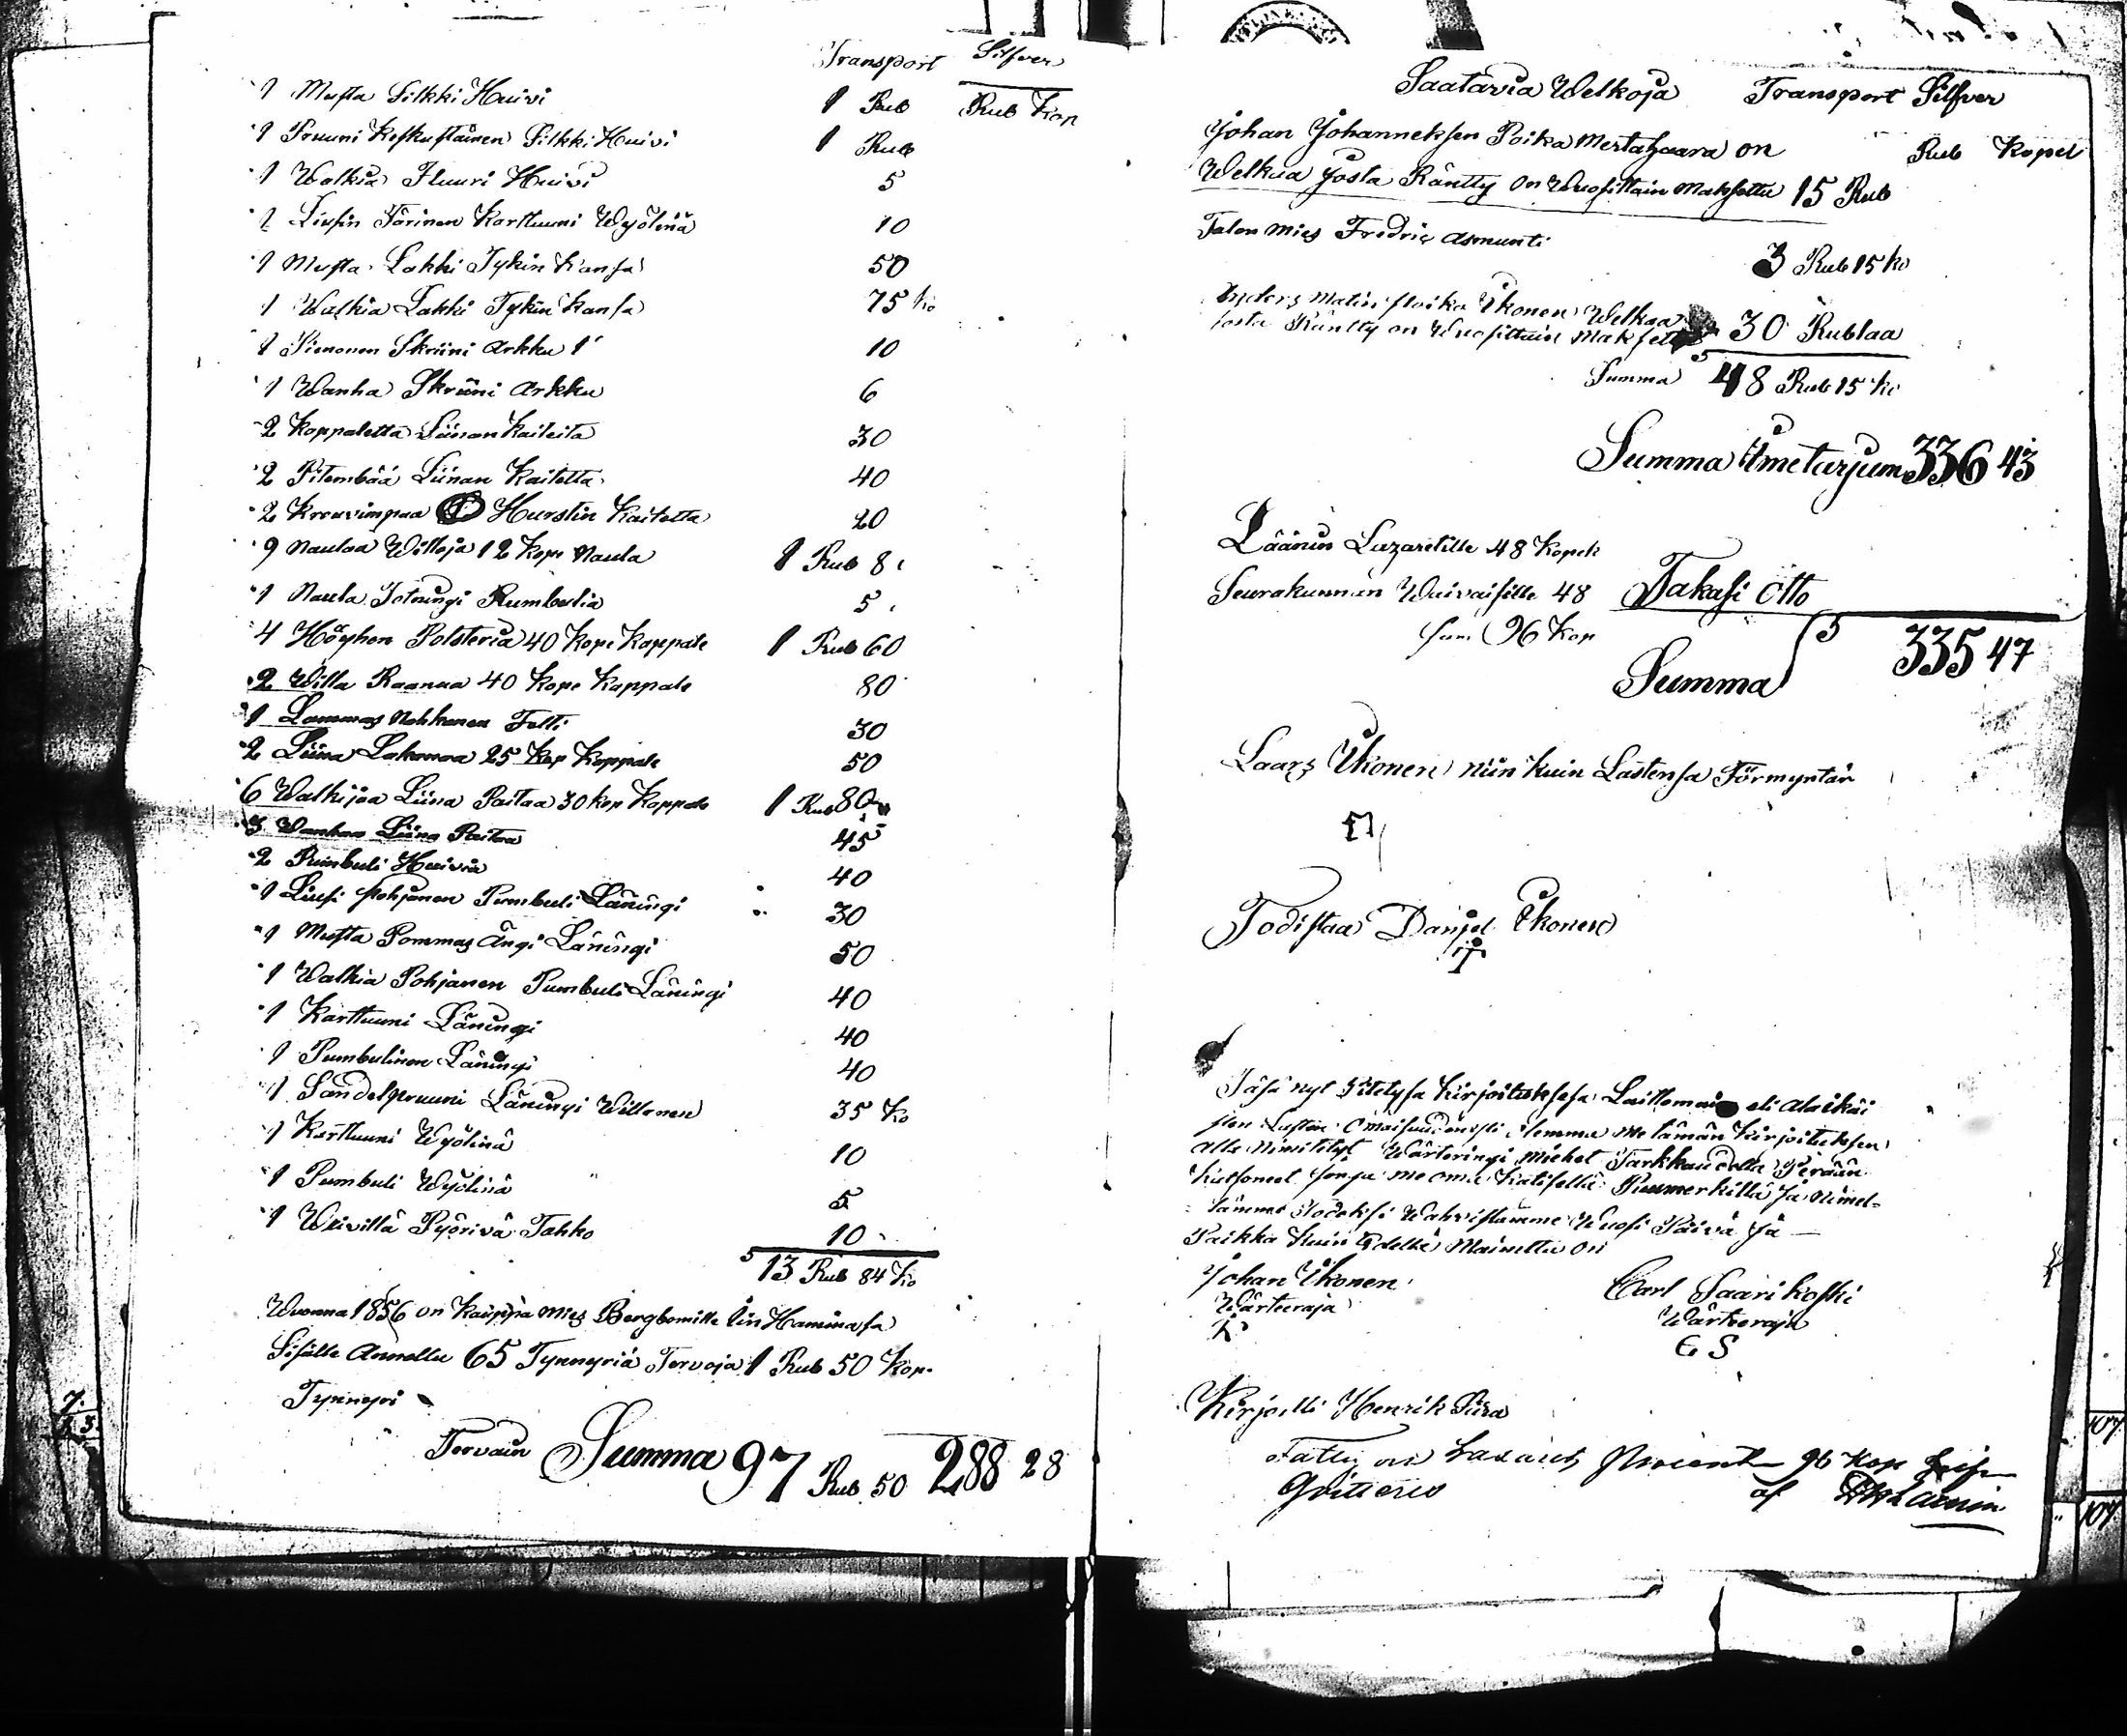 Transport Silfver
1 Musta Silkki Huivi 1 Rub Rub Kop
1 Pruuni Keskustainen Silkki Huivi 1 Rub
1 Walkia Fluuri Huivi 5
1 Liusin Färinen Karttuuni Wyölinä 10
1 Musta Lakki Tykin Kansa 50
1 Walkia Lakki Tykin Kansa 75 Ko
1 Pienonen Skriini Arkku 1 10
1 Wanha Skriini Arkku 6
2 Kappaletta Liinan Kaiteita 30
2 Pitembää Liinan Kaitetta 40
2 Hurstin Kaitetta 20
9 Naulaa Willoja 12 Kope Naula 1 Rub 8
1 Naula Rumbulia 5
4 Höyhen Polsteria 40 Kope Kappale 1 Rub 60
2 Willa Raanua 40 Kope Kappale 80
1 Lammas Nahkanen Felti 30
2 Liina Lakanaa 25 Kop Kappale 50
6 Walkijaa Liina Paitaa 30 kop Kappale 1 Rub 80
3 Wanhaa Liina Paitaa 45
2 Pumbuli Huivia 40
1 Liusi Pohjanen Pumbuli Läningi 30
1 Musta Pommas Ängi Läningi 50
1 Walkia Pohjanen Pumbuli Läningi 40
1 Karttuuni Läningi 40
1 Pumbulinen Läningi 40
1 Sandelpruuni Läningi Willanen 35 Ko
1 Karttuuni Wyölinä 10
1 Pumbuli Wyölinä 5
1 Weivillä Pyörivä Tahko 10
13 Rub 84 Ko
Wuonna 1856 on Kauppa Mies Bergbomille Iin Haminasa
Sisälle Annettu 65 Tynnyriä Tervoja 1 Rub 50 Kop.
Tynnyri
Tervain Summa 97 Rub 50 288 28
Saatavia Welkoja Transport Silfver
Johan Johanneksen Poika Mertavaara on Rub Kopek
Welkaa Josta Räntty on Wuosittain Maksettu 15 Rub
Talon Mies Fredric Asmunti
3 Rub 15 ko
Anders Matin Poika Ikonen Welkaa
Josta Räntty on Wuosittain Maksettu 30 Rublaa
Summa 48 Rub 15 ko
Summa 336 43
Läänin Lazaretille 48 Kopek
Seurakunnan Waivaisille 48 Takasi Otto
sum 96 Kop
Summa 335 47
Laars Ikonen niin kuin Lastensa Förmyntär
Todistaa Danjel Ikonen
Täsä nyt Kirjoituksesa eli alaikäi
sten Lasten Omaisuudensti Olemma Me tämän Kirjoituksen
alla Nimitetyt Wärteringi Miehet Tarkkaudella Perään
Katsoneet Jonga Me oma Kätisellä Puumerkillä Ja Nimel-
lämme Todeksi Wahvistamme Wuosi Päivä Ja
Paikka Kuin Edellä Mainittu on
Johan Ikonen Carl Saarikoski
Wärteeraja Wärteeraja
C S
Kirjoitti Henrik
Fattig och Lazarets Procent 96 Kop
Qvitteras af
107
107